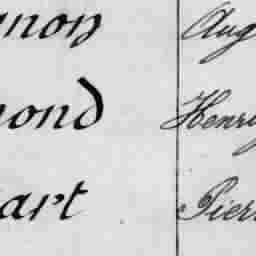 non Aug
mond Henry
art Pierr